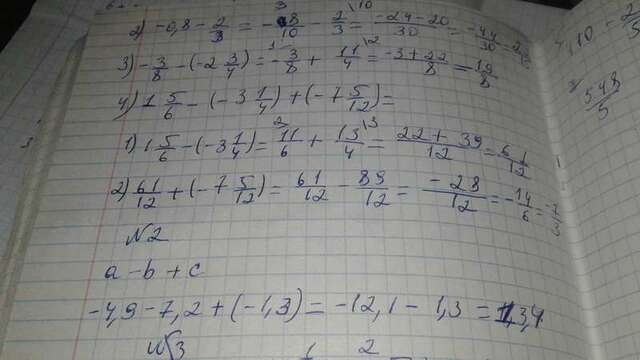 2) -0,8 - 2/3 = -8/10 - 2/3 = -24-20/30 = -44/30 =
3) -3/8 - (-2 3/4) = -3/8 + 11/4 = -3+22/8 = 19/8
4) 1 5/6 - (-3 1/4) + (-7 5/12) =
1) 1 5/6 - (-3 1/4) = 11/6 + 13/4 = 22+39/12 = 61/12
2) 61/12 + (-7 5/12) = 61/12 - 89/12 = -28/12 = -14/6 = -7/3
N2
a - b + c
-4,9 - 7,2 + (-1,3) = -12,1 - 1,3 = 13,4
N3
548/5